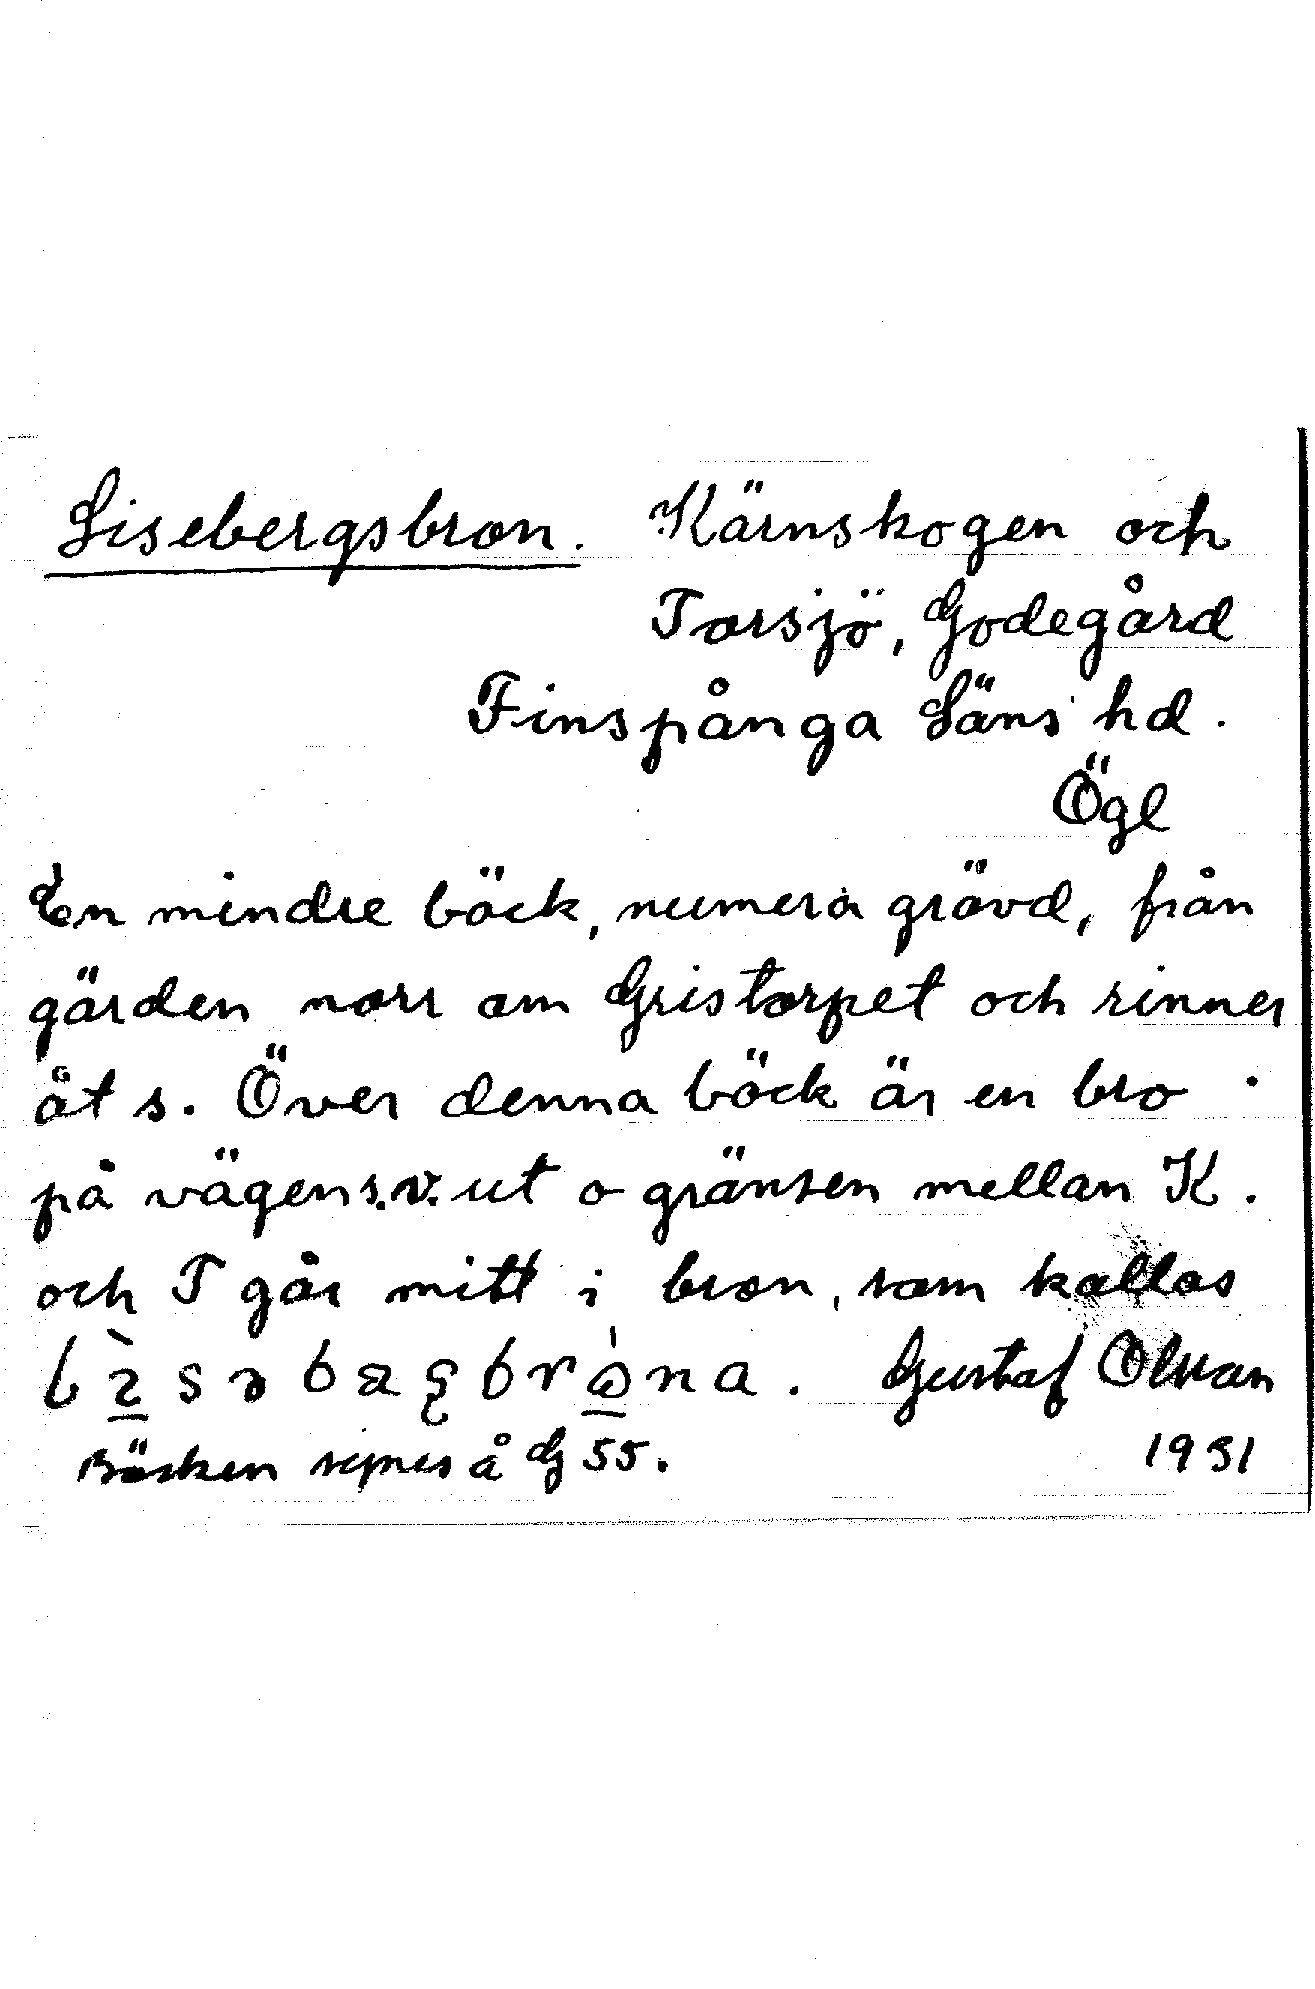 Lisebergsbron. Kärnskogen och
Torsjö, Godegård
Finspånga Läns hd.
Ögl
En mindre bäck, numera grävd, från
gärden norr om Gristorpet och rinner
åt s. Över denna bäck är en bro
på vägen s.v. ut o gränsen mellan K.
och T går mitt i bron, som kallas
Gustaf Olsson
Bäcken synes å G 55. 1931